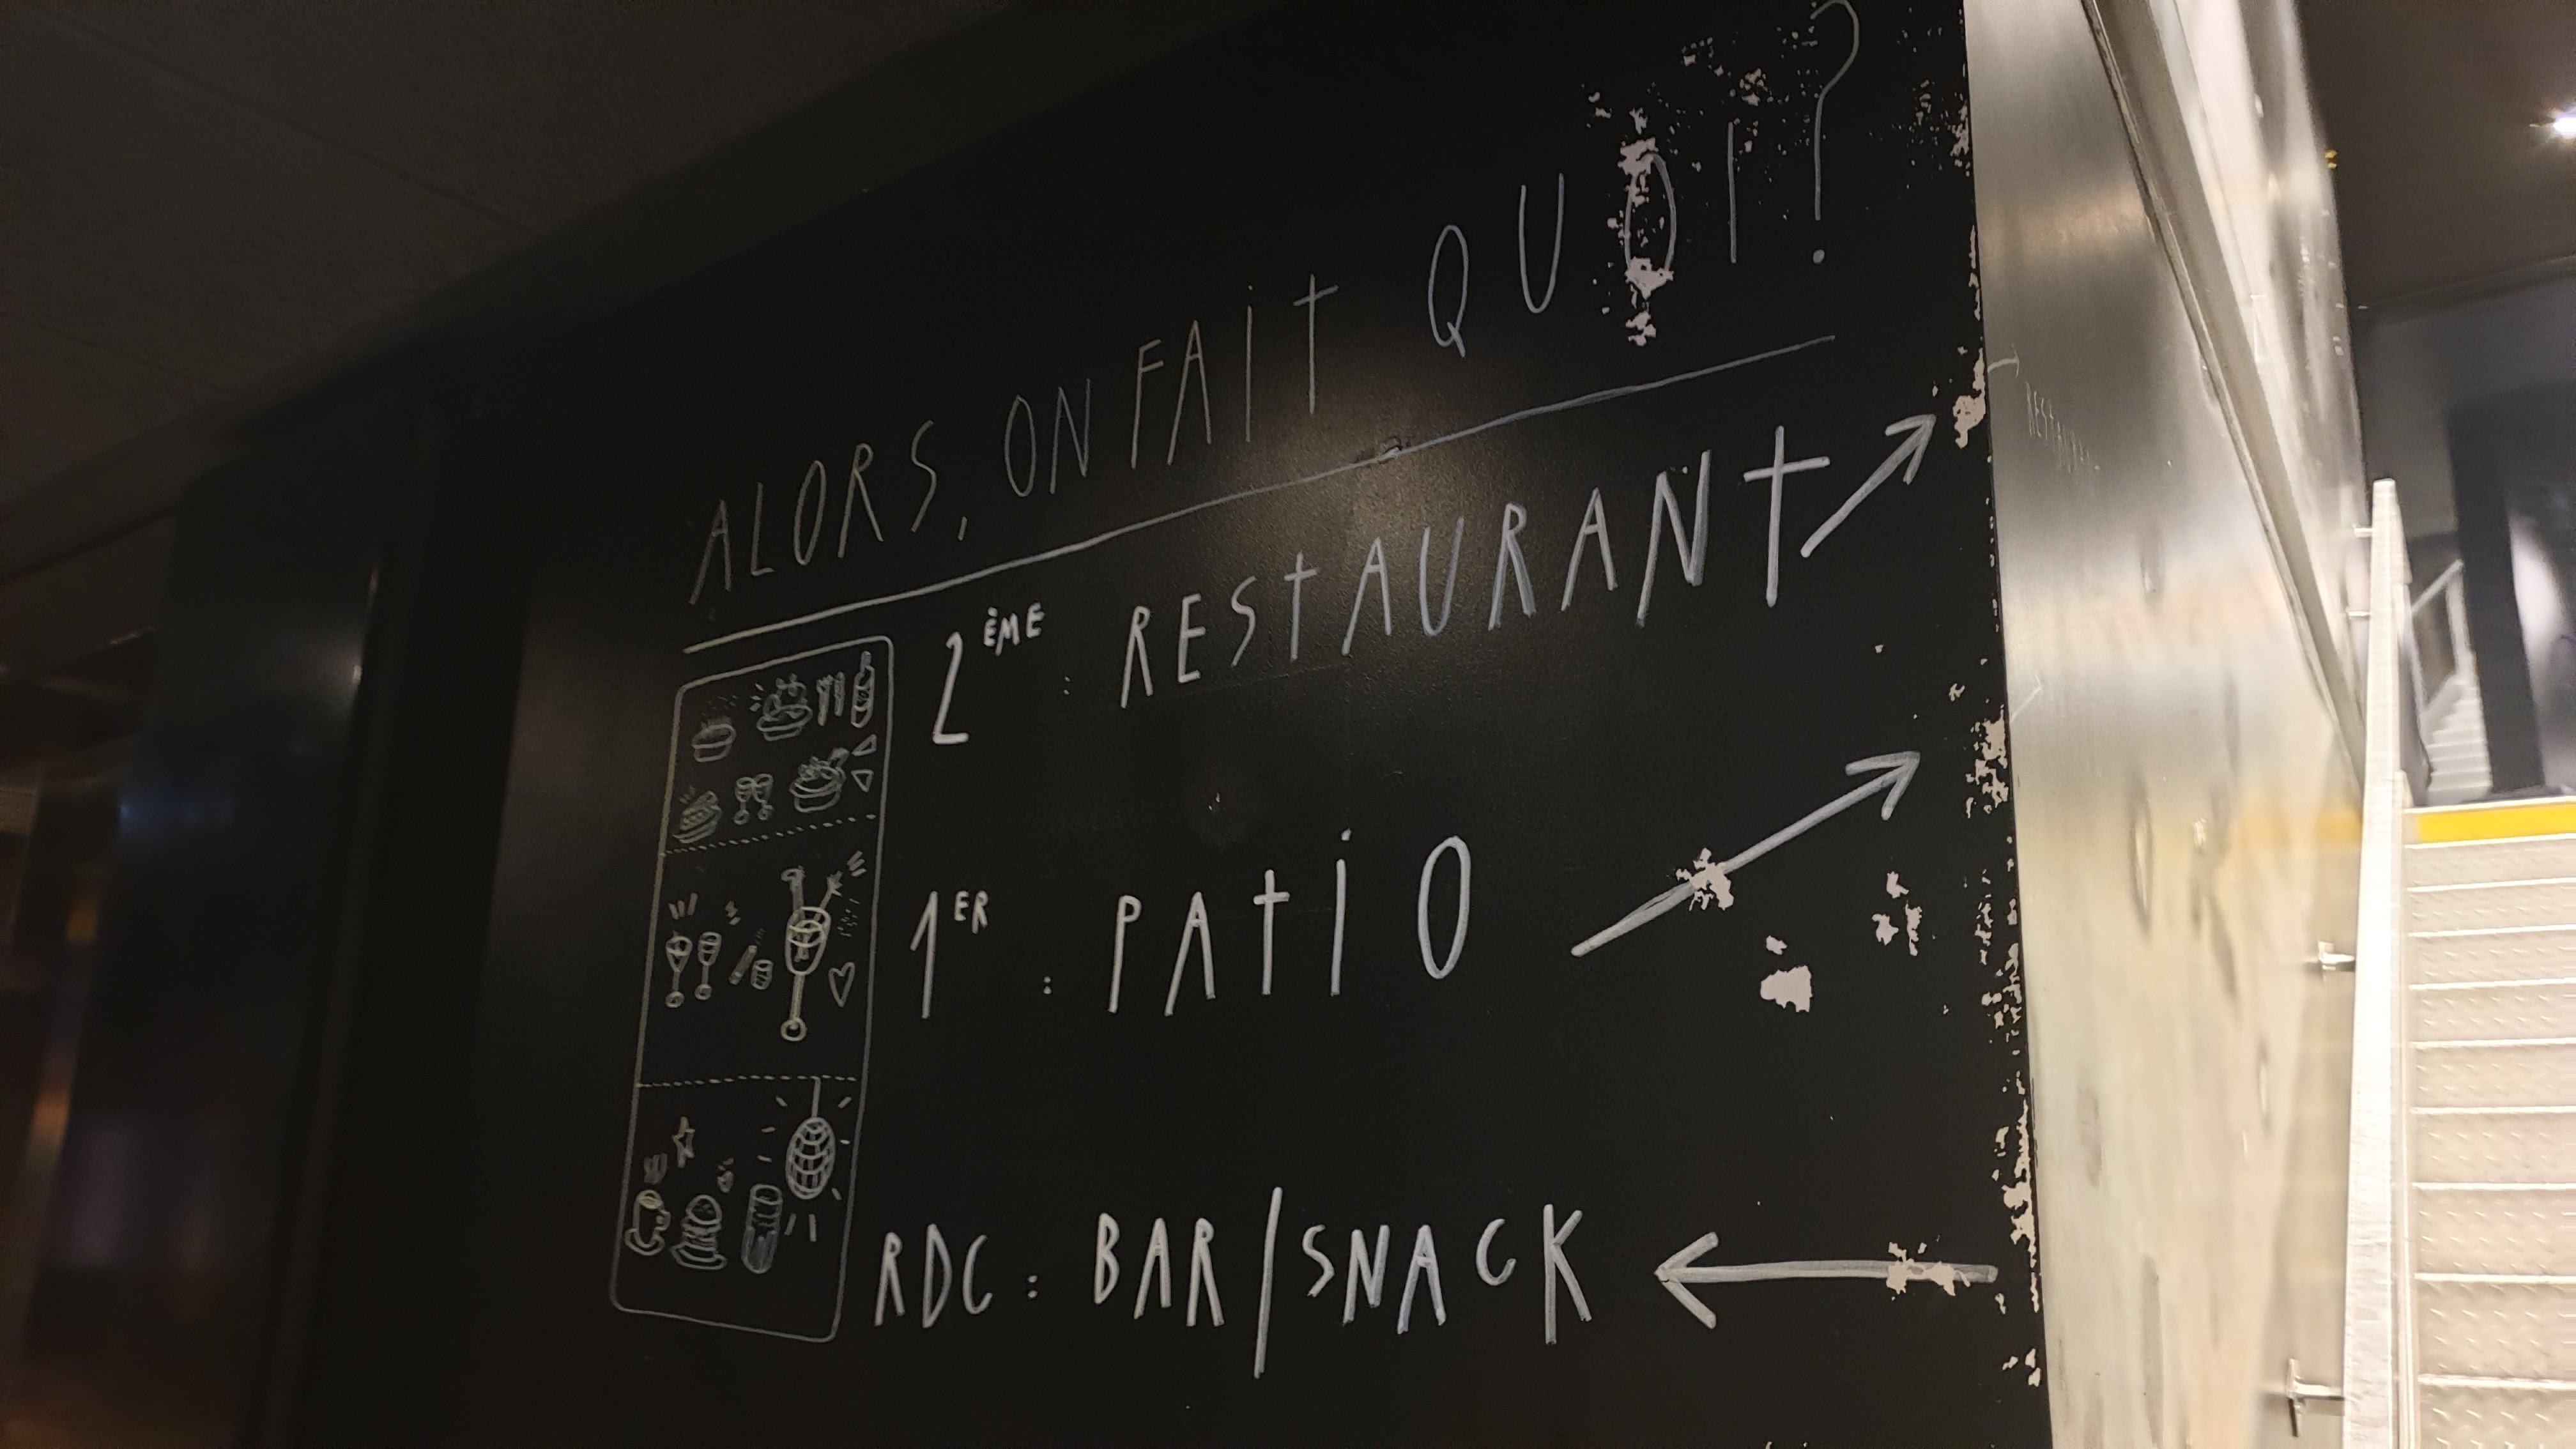 ALORS, ON FAIT QUOI?
2ÈME : RESTAURANT
1ER : PATIO
RDC : BAR/SNACK